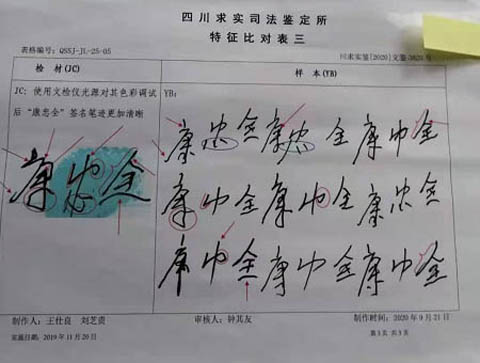 四川求实司法鉴定所
特征比对表三
表格编号：QSSJ-JL-25-05
川求实鉴[2020]文鉴3820号
检 材(JC)
样 本(YB)
JC: 使用文检仪光源对其色彩调试
后“康忠全”签名笔迹更加清晰
YB:
康忠全
康忠全康忠全康中全
康中全康中全康忠全
康中全康中全康中全
制作人：王仕良 刘芝贵
审核人：钟其友
制作时间：2020年9月21日
启用日期：2019年11月20日
第3页 共3页